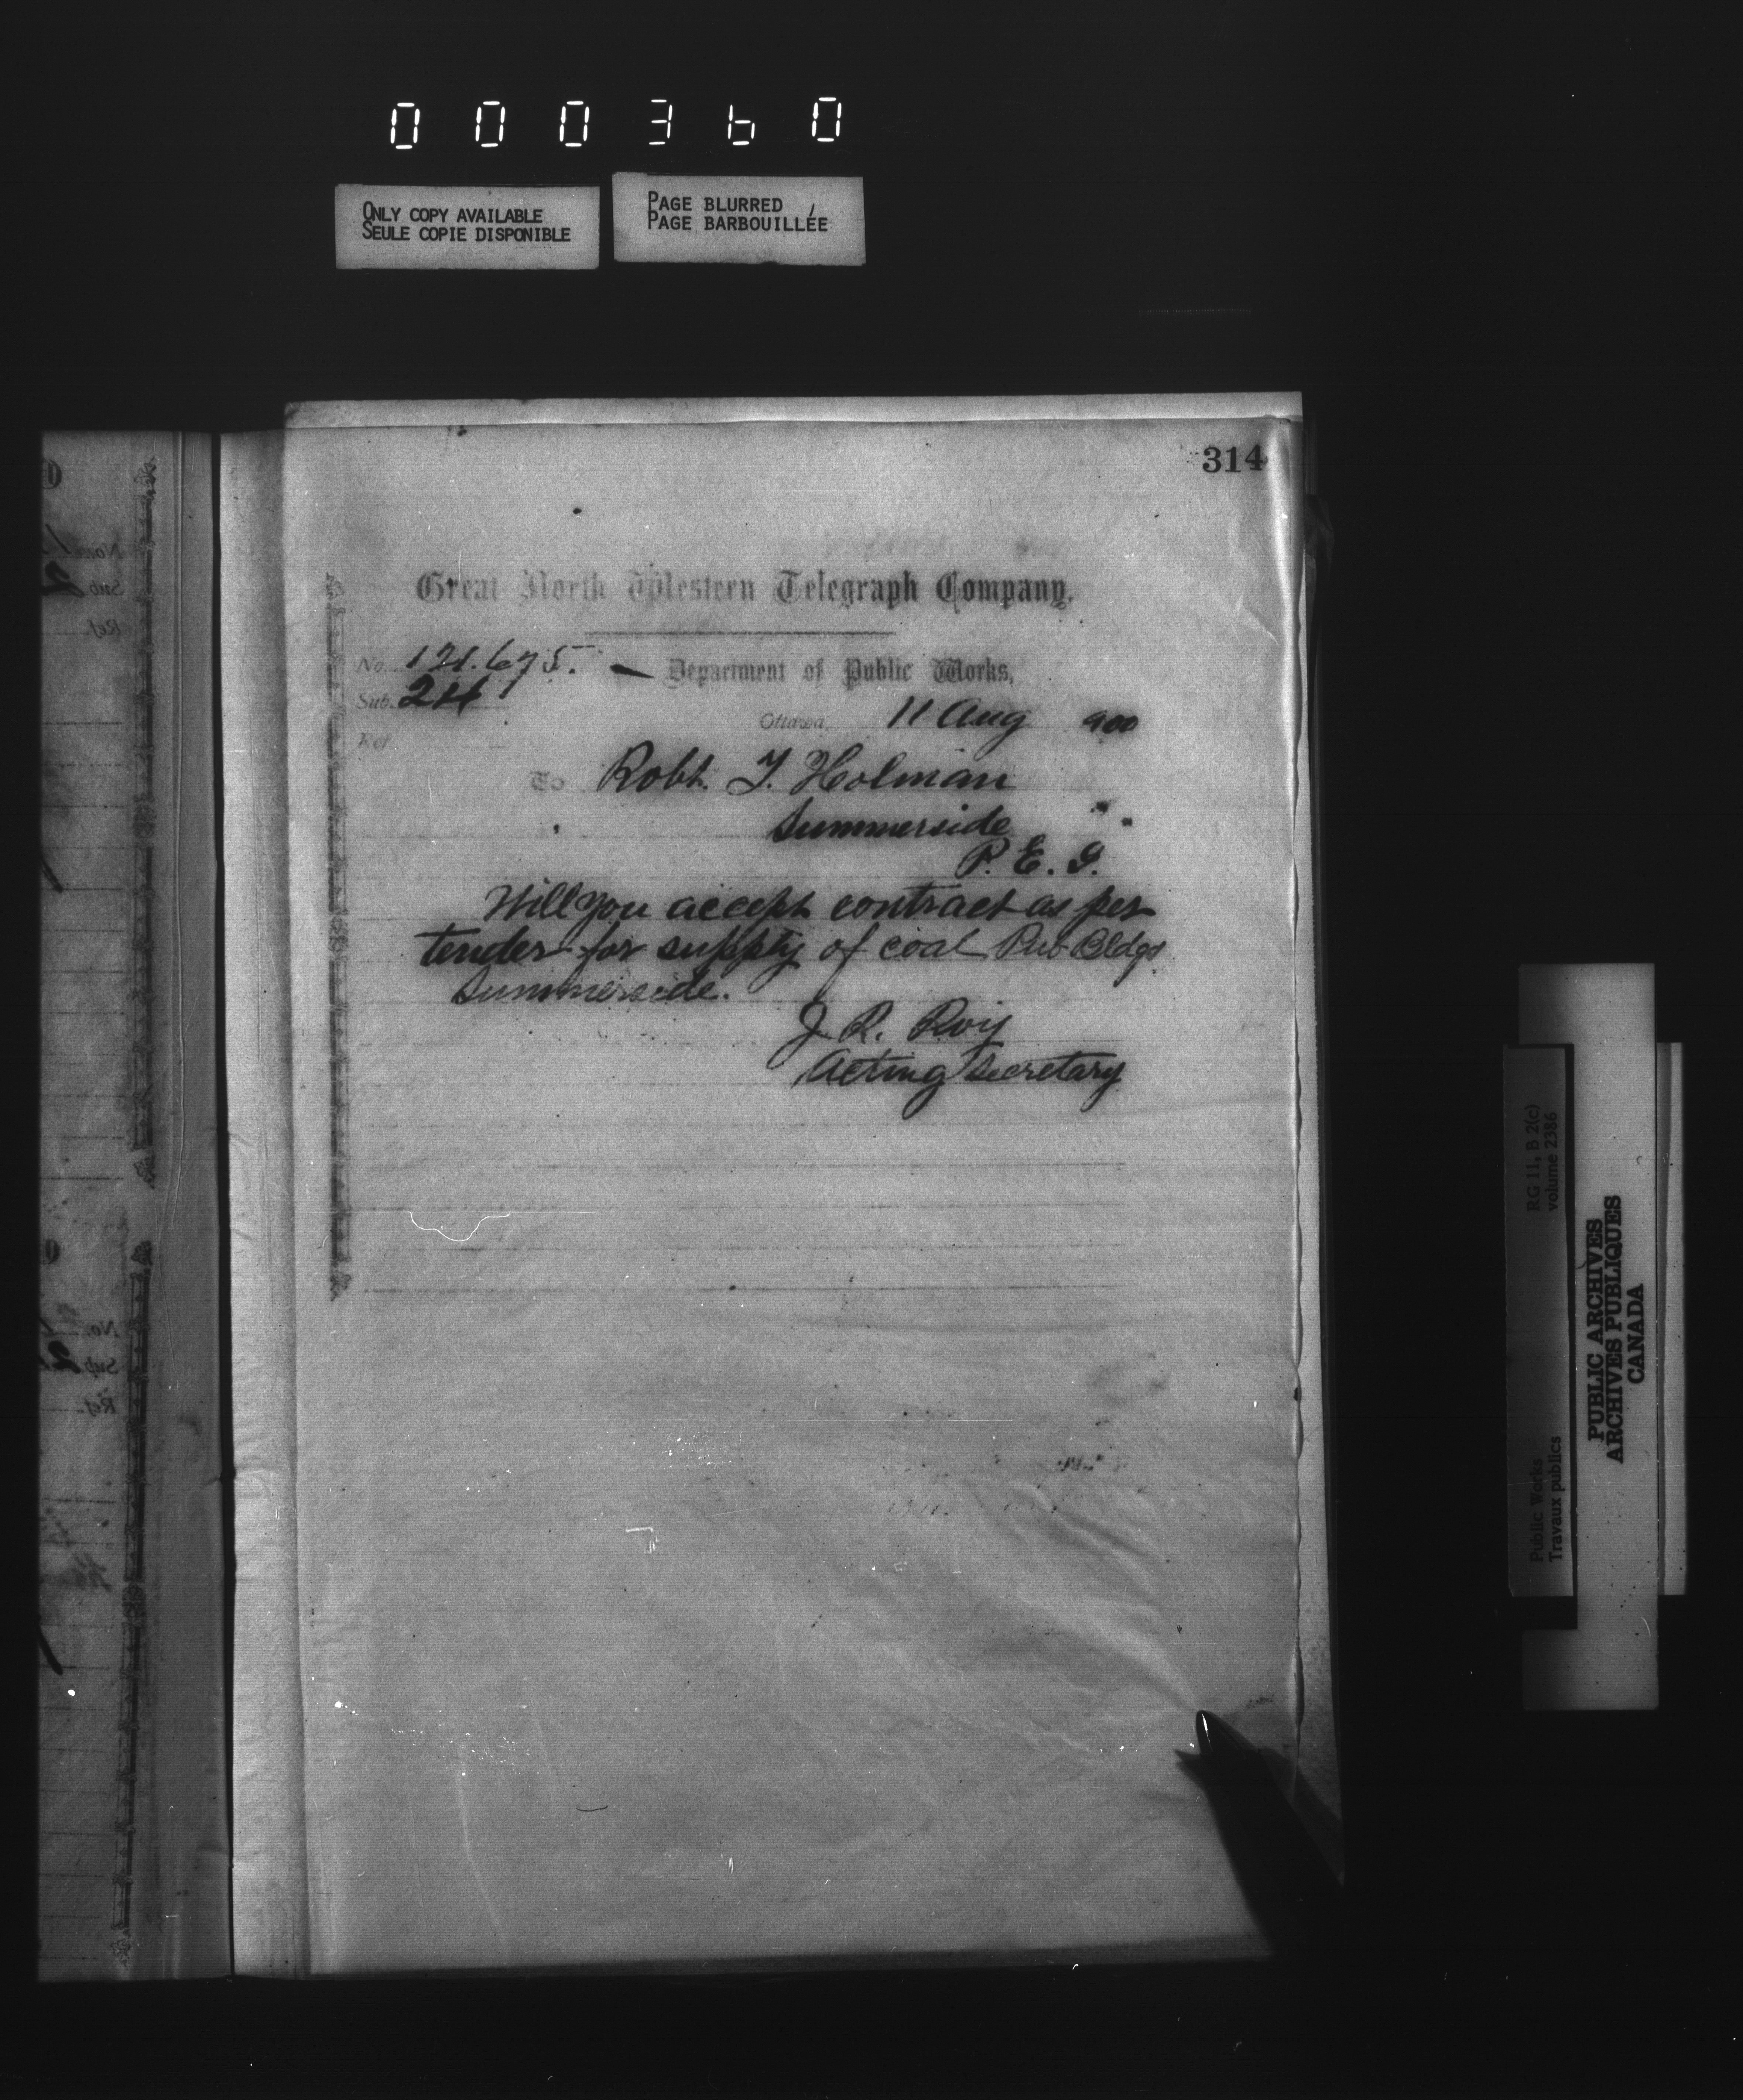 000360
ONLY COPY AVAILABLE
SEULE COPIE DISPONIBLE
PAGE BLURRED
PAGE BARBOUILLÉE
314
Great North Western Telegraph Company.
No. 121.675.
Department of Public Works,
Sub. 24
Ottawa, 11 Aug 900
Ref.
To Robt. T. Holman
Summerside
P. E. I.
Will you accept contract as per
tender for supply of coal Pub Bldgs
Summerside.
J. R. Roy
Acting Secretary
RG 11, B 2(c)
volume 2386
Public Works
Travaux publics
PUBLIC ARCHIVES
ARCHIVES PUBLIQUES
CANADA
No.
Sub. 2
Ref.
No.
Sub. 2
Ref.